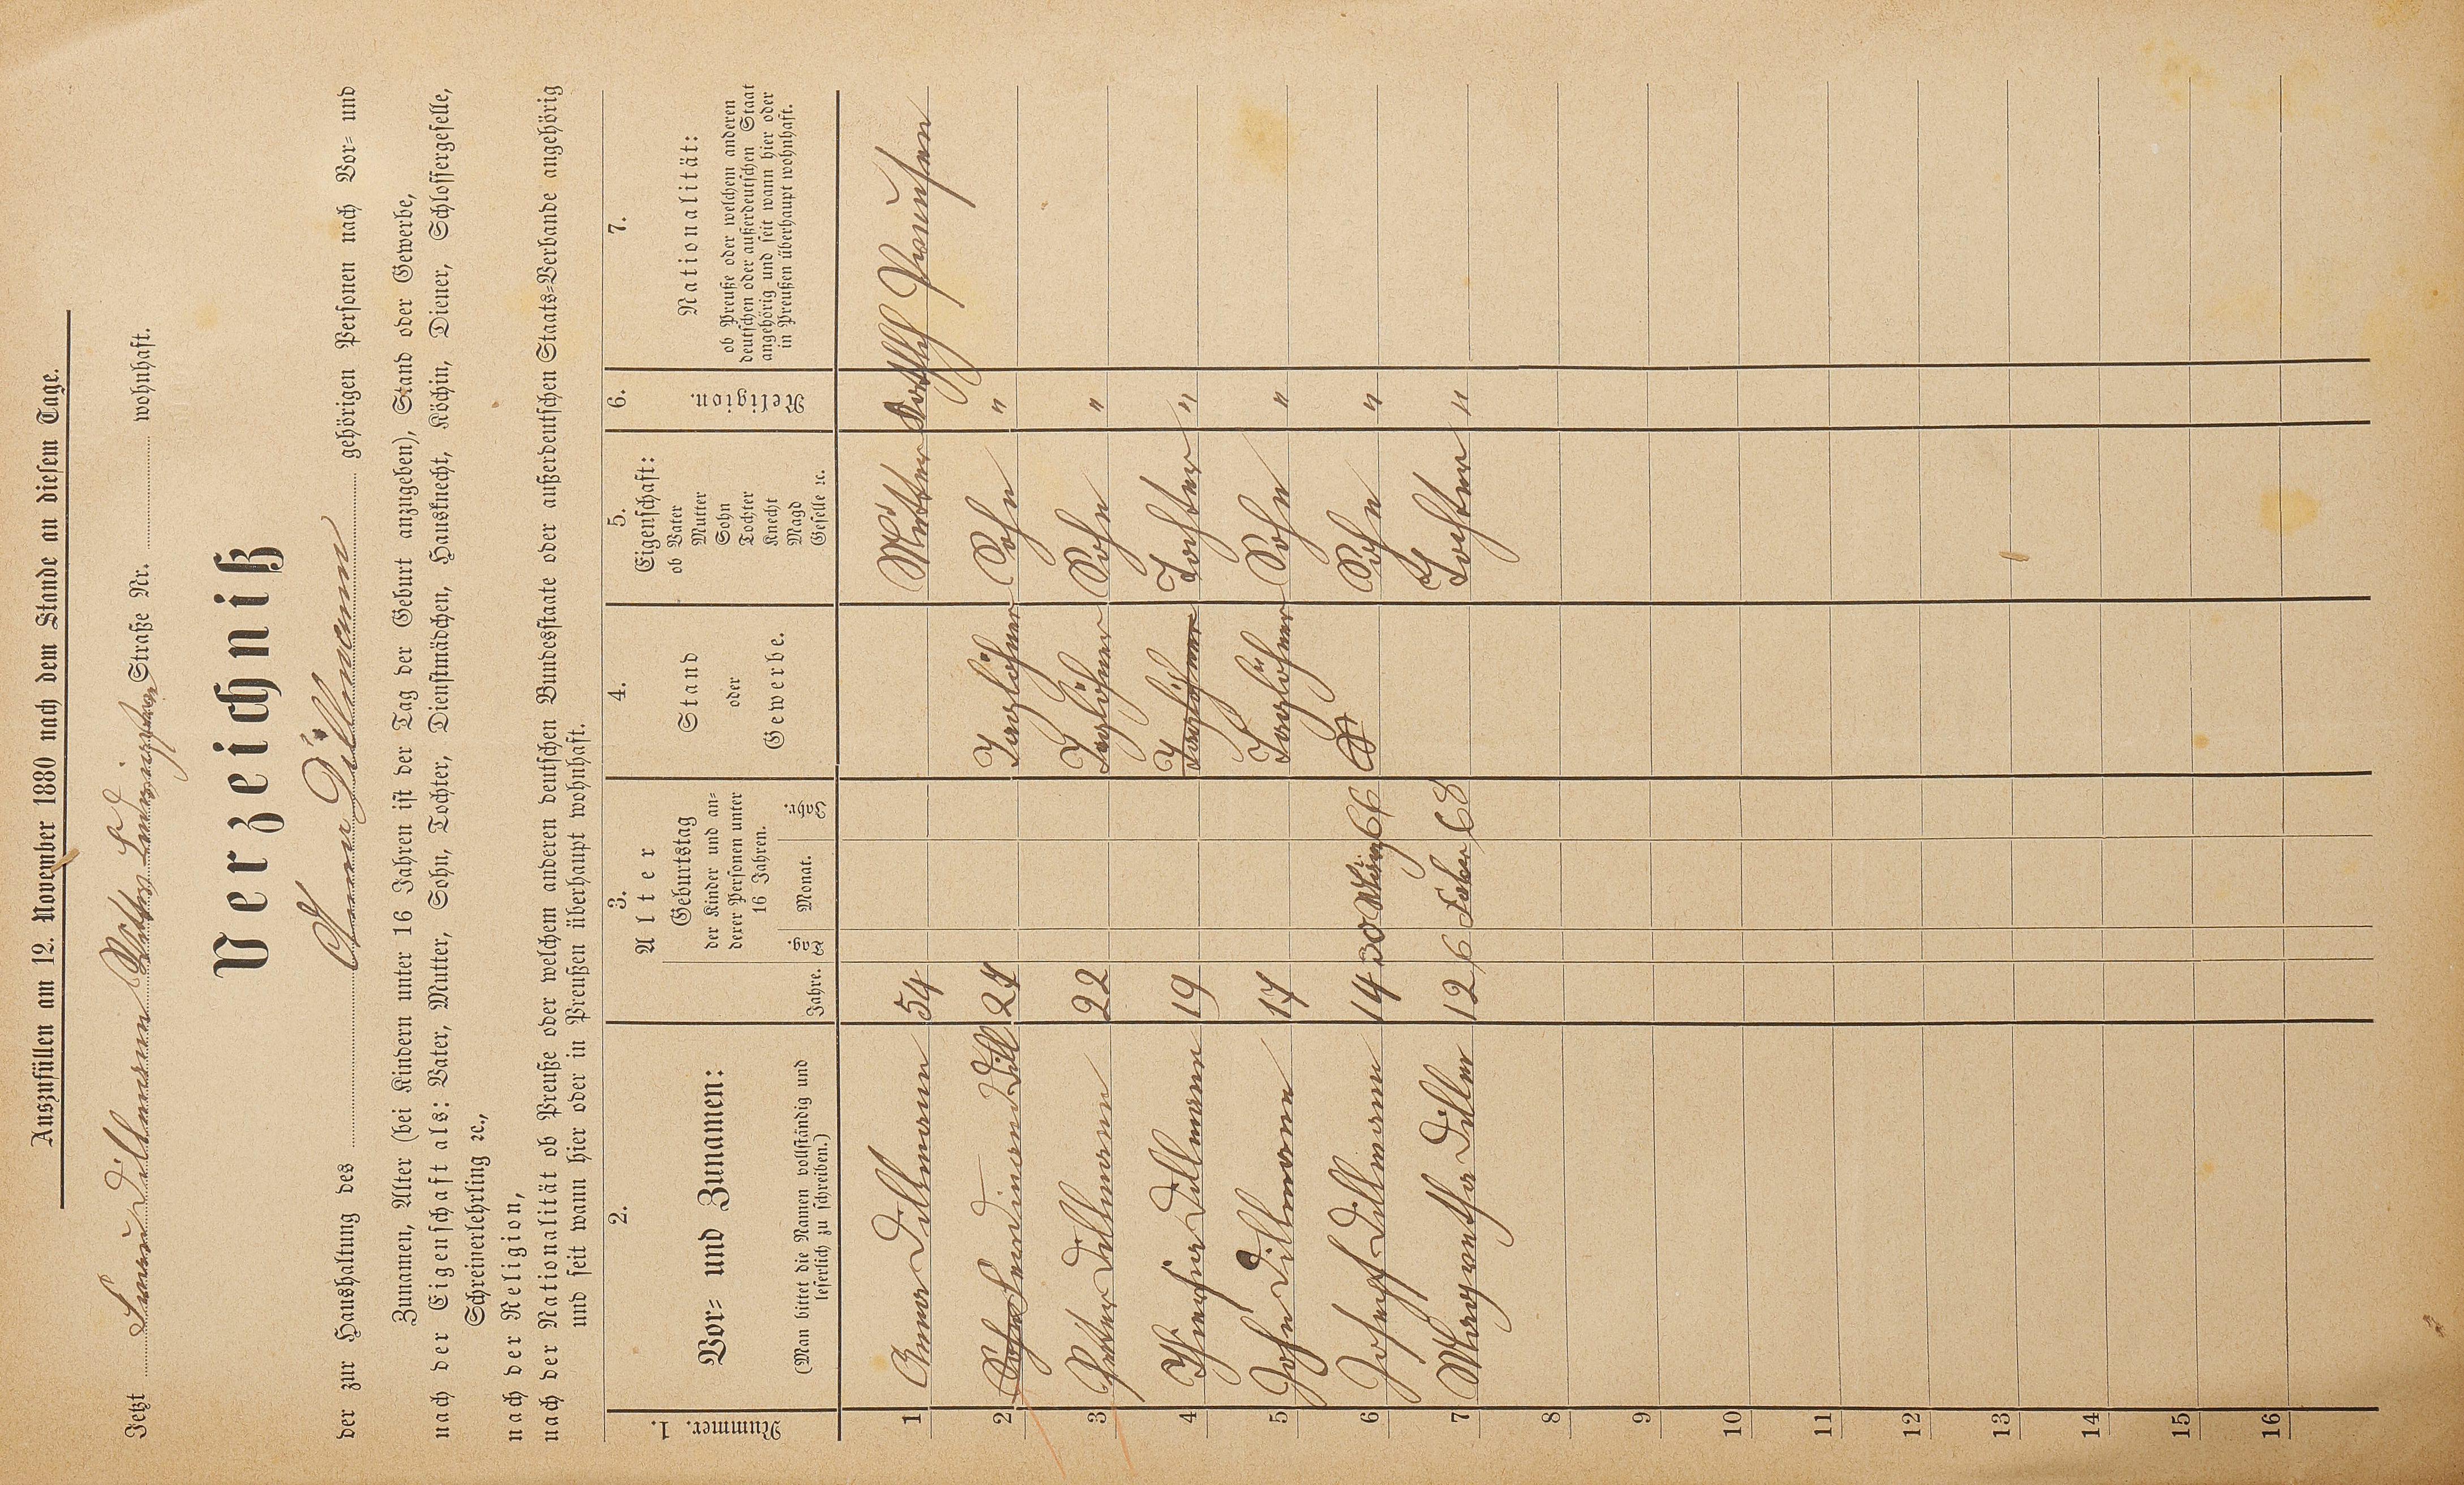 Auszufüllen am 12. November 1880 nach dem Stande an diesem Tage.
Jetzt Dillmann Straße Nr. wohnhaft.
Verzeichniß
der zur Haushaltung des Dillmann gehörigen Personen nach Vor- und
Zunamen, Alter (bei Kindern unter 16 Jahren ist der Tag der Geburt anzugeben), Stand oder Gewerbe,
nach der Eigenschaft als: Vater, Mutter, Sohn, Tochter, Dienstmädchen, Hausknecht, Köchin, Diener, Schlossergeselle,
Schreinerlehrling ꝛc.,
nach der Religion,
nach der Nationalität ob Preuße oder welchem anderen deutschen Bundesstaate oder außerdeutschen Staats-Verbande angehörig
und seit wann hier oder in Preußen überhaupt wohnhaft.
1. Nummer.
2. Vor- und Zunamen:
(Man bittet die Namen vollständig und
leserlich zu schreiben.)
3. Alter
Jahre.
Geburtstag
der Kinder und an-
derer Personen unter
16 Jahren.
Tag. Monat. Jahr.
4. Stand
oder
Gewerbe.
5. Eigenschaft:
ob Vater
Mutter
Sohn
Tochter
Knecht
Magd
Geselle ꝛc.
6. Religion.
7. Nationalität:
ob Preuße oder welchem anderen
deutschen oder außerdeutschen Staat
angehörig und seit wann hier oder
in Preußen überhaupt wohnhaft.
1 Anna Dillmann 54 Mutter Kathlh Preusen
2 Sohn Ferdinand Dill 24 Taglöhner Sohn "
3 Peter Dillmann 22 Taglöhner Sohn "
4 Dillmann 19 Taglöhner Tochter "
5 John Dillmann 17 Taglöhner Sohn "
6 Joseph Dillmann 14 30 März 66 Sohn "
7 Margretha Dillm 12 6 Feber 68 Tochter "
8
9
10
11
12
13
14
15
16